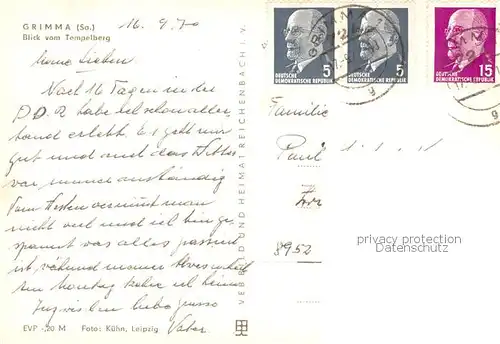 GRIMMA (Sa.)
Blick vom Tempelberg
16. 9. 70
meine Lieben
Nach 16 Tagen in der
DDR habe ich schon aller-
hand erlebt. Es geht mir
gut und auch das Wetter
war immer anständig
Vom Westen vernimmt man
nicht viel und ich bin ge-
spannt was alles passiert
ist, während meiner Abwesenheit
am Montag habe ich
liebe Grüsse
Vater
EVP -,20 M Foto: Kühn, Leipzig
VERBAND UND HEIMAT REICHENBACH I. V.
5
DEUTSCHE
DEMOKRATISCHE REPUBLIK
5
DEUTSCHE
DEMOKRATISCHE REPUBLIK
15
DEUTSCHE
DEMOKRATISCHE REPUBLIK
Familie
Paul
8952
privacy protection
Datenschutz